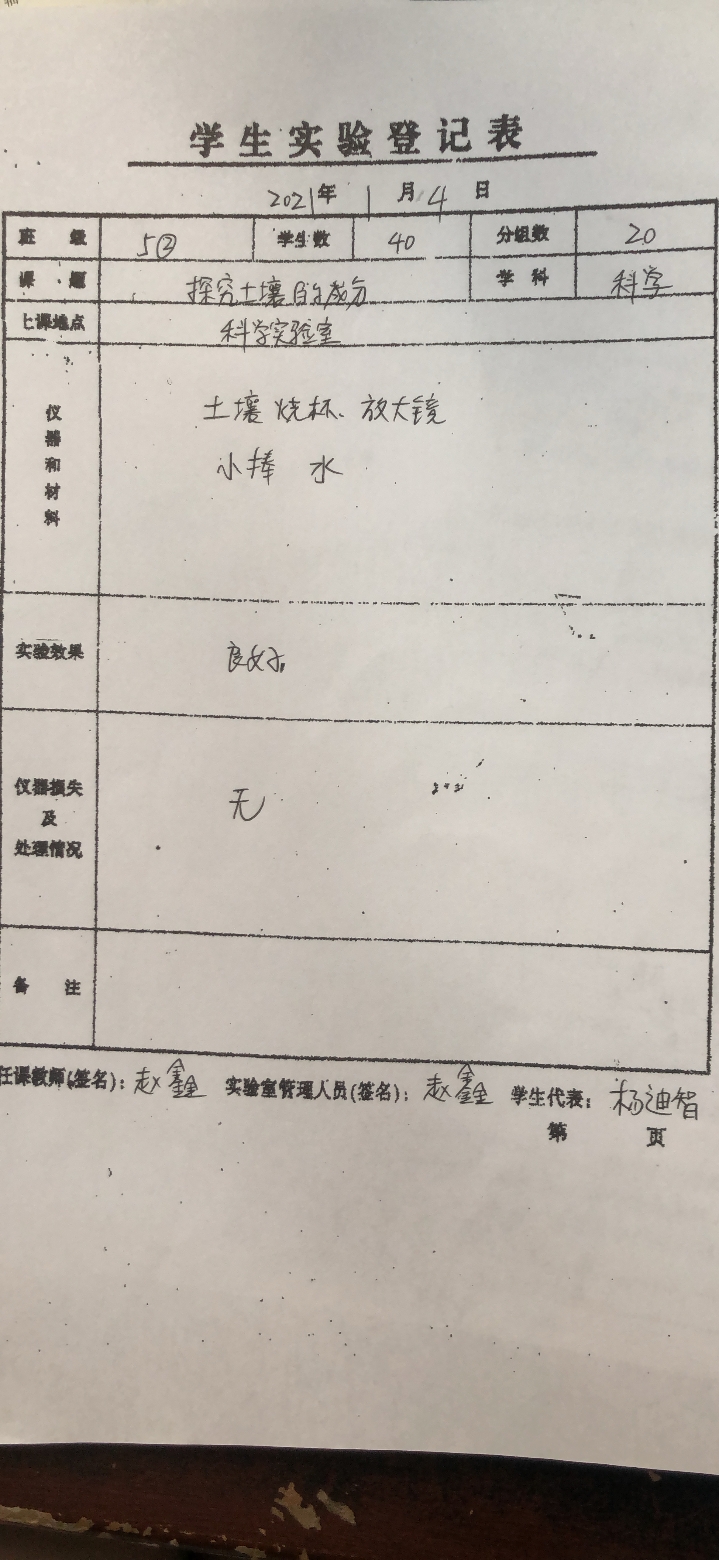 学生实验登记表
2021年 1月 4日
班 级 5② 学生数 40 分组数 20
课 题 探究土壤的成分 学 科 科学
上课地点 科学实验室
仪器和材料 土壤 烧杯、放大镜
小捧 水
实验效果 良好
仪器损失及处理情况 无
备 注
任课教师(签名): 赵鑫 实验室管理人员(签名): 赵鑫 学生代表: 杨迪智
第 页